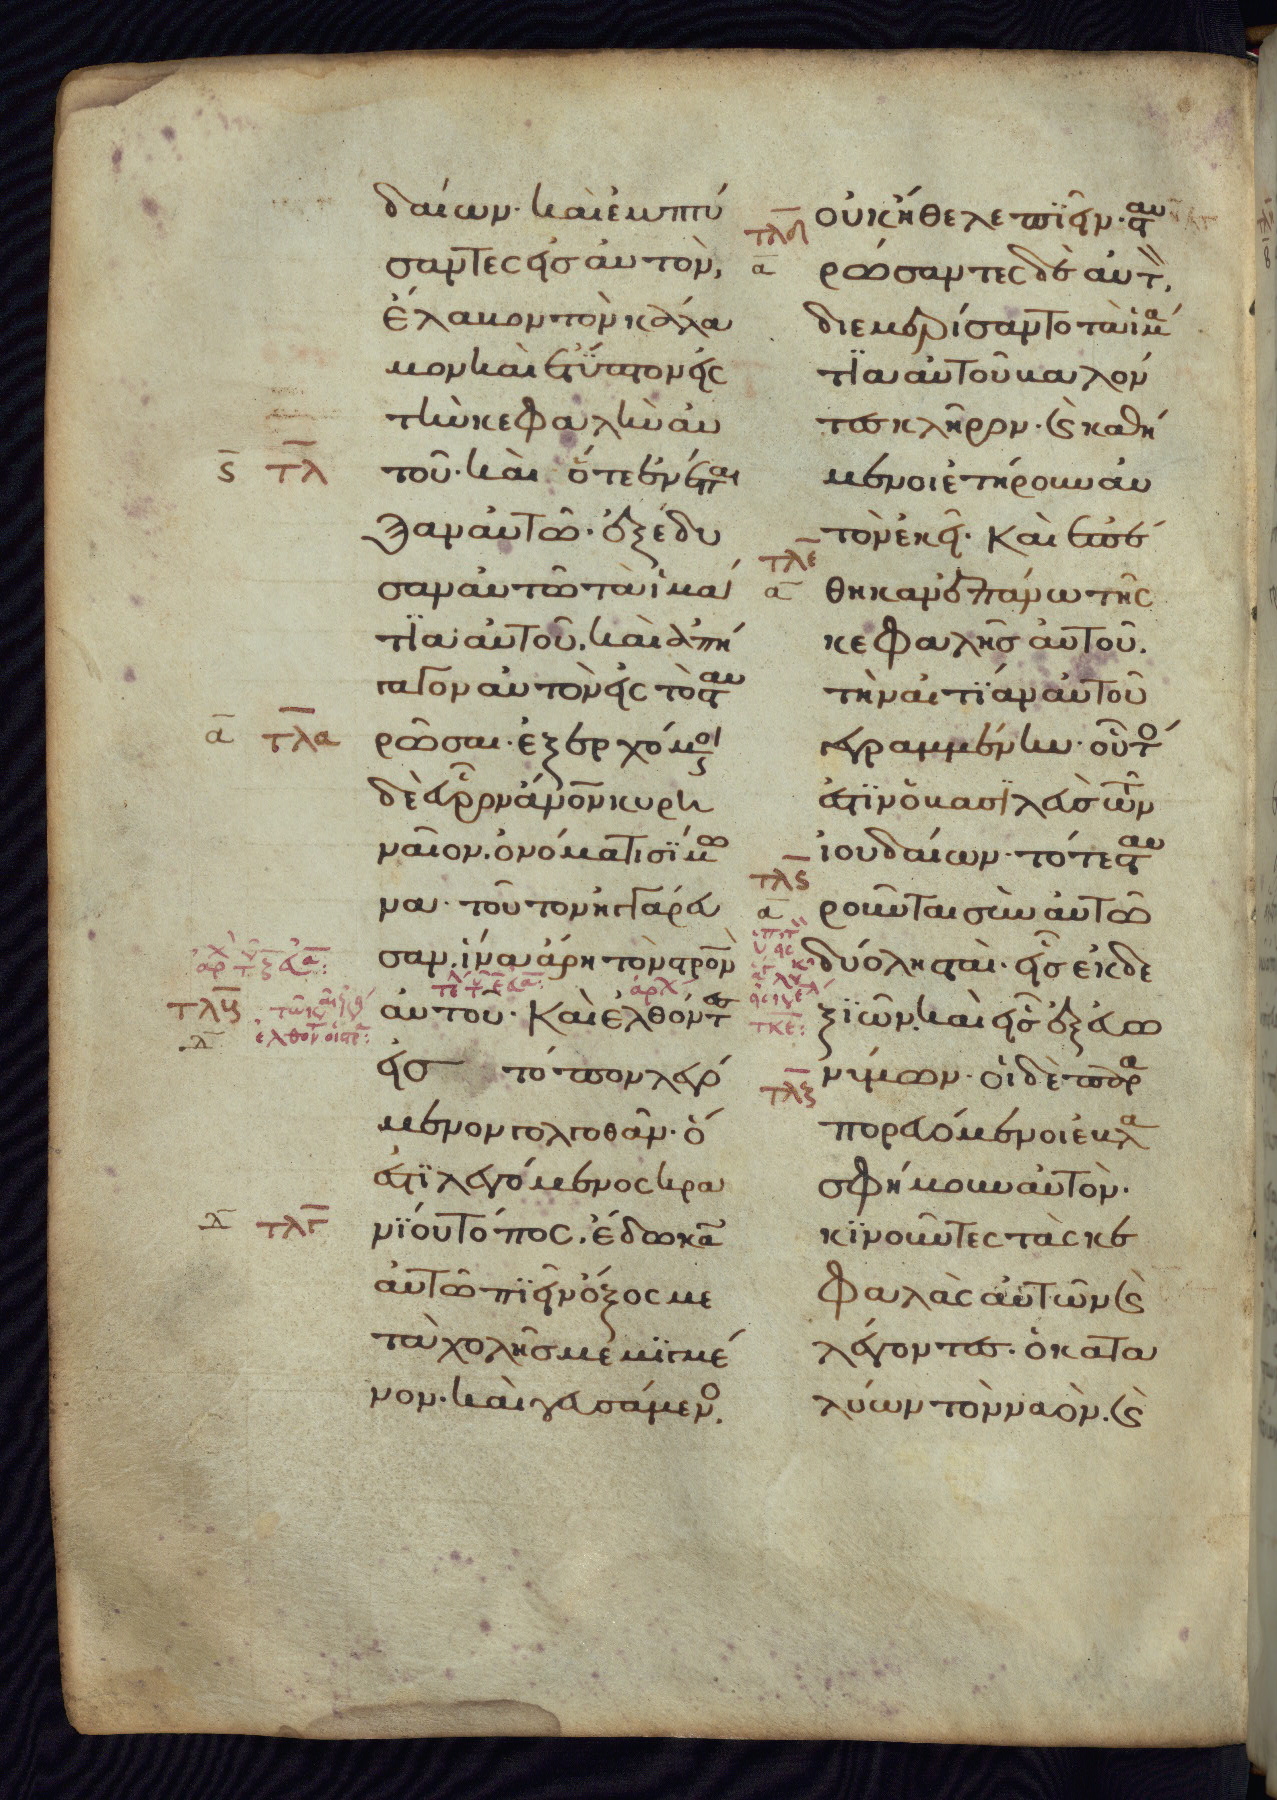 δαίων· καὶ ἐμπτύ
σαντες εἰσ αὐτὸν,
ἔλαβον τὸν κάλα
μον καὶ ἔτϋπτον εἰς
τὴν κεφαλὴν αὐ
ς τλ τοῦ· καὶ ὅτε ἐνέπαι
ξαν αὐτῶ· ἐξέδυ
σαν αὐτῶ τὰ ἱμά
τϊα αὐτοῦ, καὶ ἀπή
γαγον αὐτὸν εἰς τὸ σταυ
α τλα ρῶσαι· ἐξερχόμοι
δὲ εὗρον ἄνον κυρη
ναῖον, ὀνόματι σϊμω
να· τοῦτον ἠγγάρευ
σαν, ἵνα ἄρη τὸν στρον
τλβ αὐτοῦ· Καὶ ἐλθόντες
εἰσ τόπον λεγό
μενον γολγοθᾶν· ὅ
ἐστϊ λεγόμενος κρα
δ τλγ νϊόυ τόπος, ἔδωκαν
αὐτῶ πϊεῖν ὄξος με
τὰ χολῆσ μεμϊγμέ
νον· καὶ γευσάμενο,
οὐκ ἤθελε πϊεῖν· σταυ
τλδ α ρώσαντες δὲ αὐτ,
διεμερίσαντο τὰ ἱμά
τϊα αὐτοῦ βαλόν
τες κλῆρον· καὶ καθή
μενοι ἐτήρουν αὐ
τὸν ἐκεῖ· Καὶ ἐπέ
τλε α θηκαν ἐπάνω τῆς
κεφαλῆσ αὐτοῦ,
τὴν αἰτϊαν αὐτοῦ
γεγραμμένην· οὗτό
ἐστϊν ὁ βασϊλεὺσ τῶν
ἰουδαίων· τότε σταυ
τλς α ροῦνται σὺν αὐτῶ
δύο λησταὶ· εἷσ ἐκ δε
ξϊῶν, καὶ εἷσ ἐξ εὐω
τλζ νύμων· οἱ δὲ παρα
πορευόμενοι ἐβλα
σφήμουν αὐτὸν·
κϊνοῦντες τὰς κε
φαλὰς αὐτῶν καὶ
λέγοντες· ὁ κατα
λύων τὸν ναὸν, καὶ